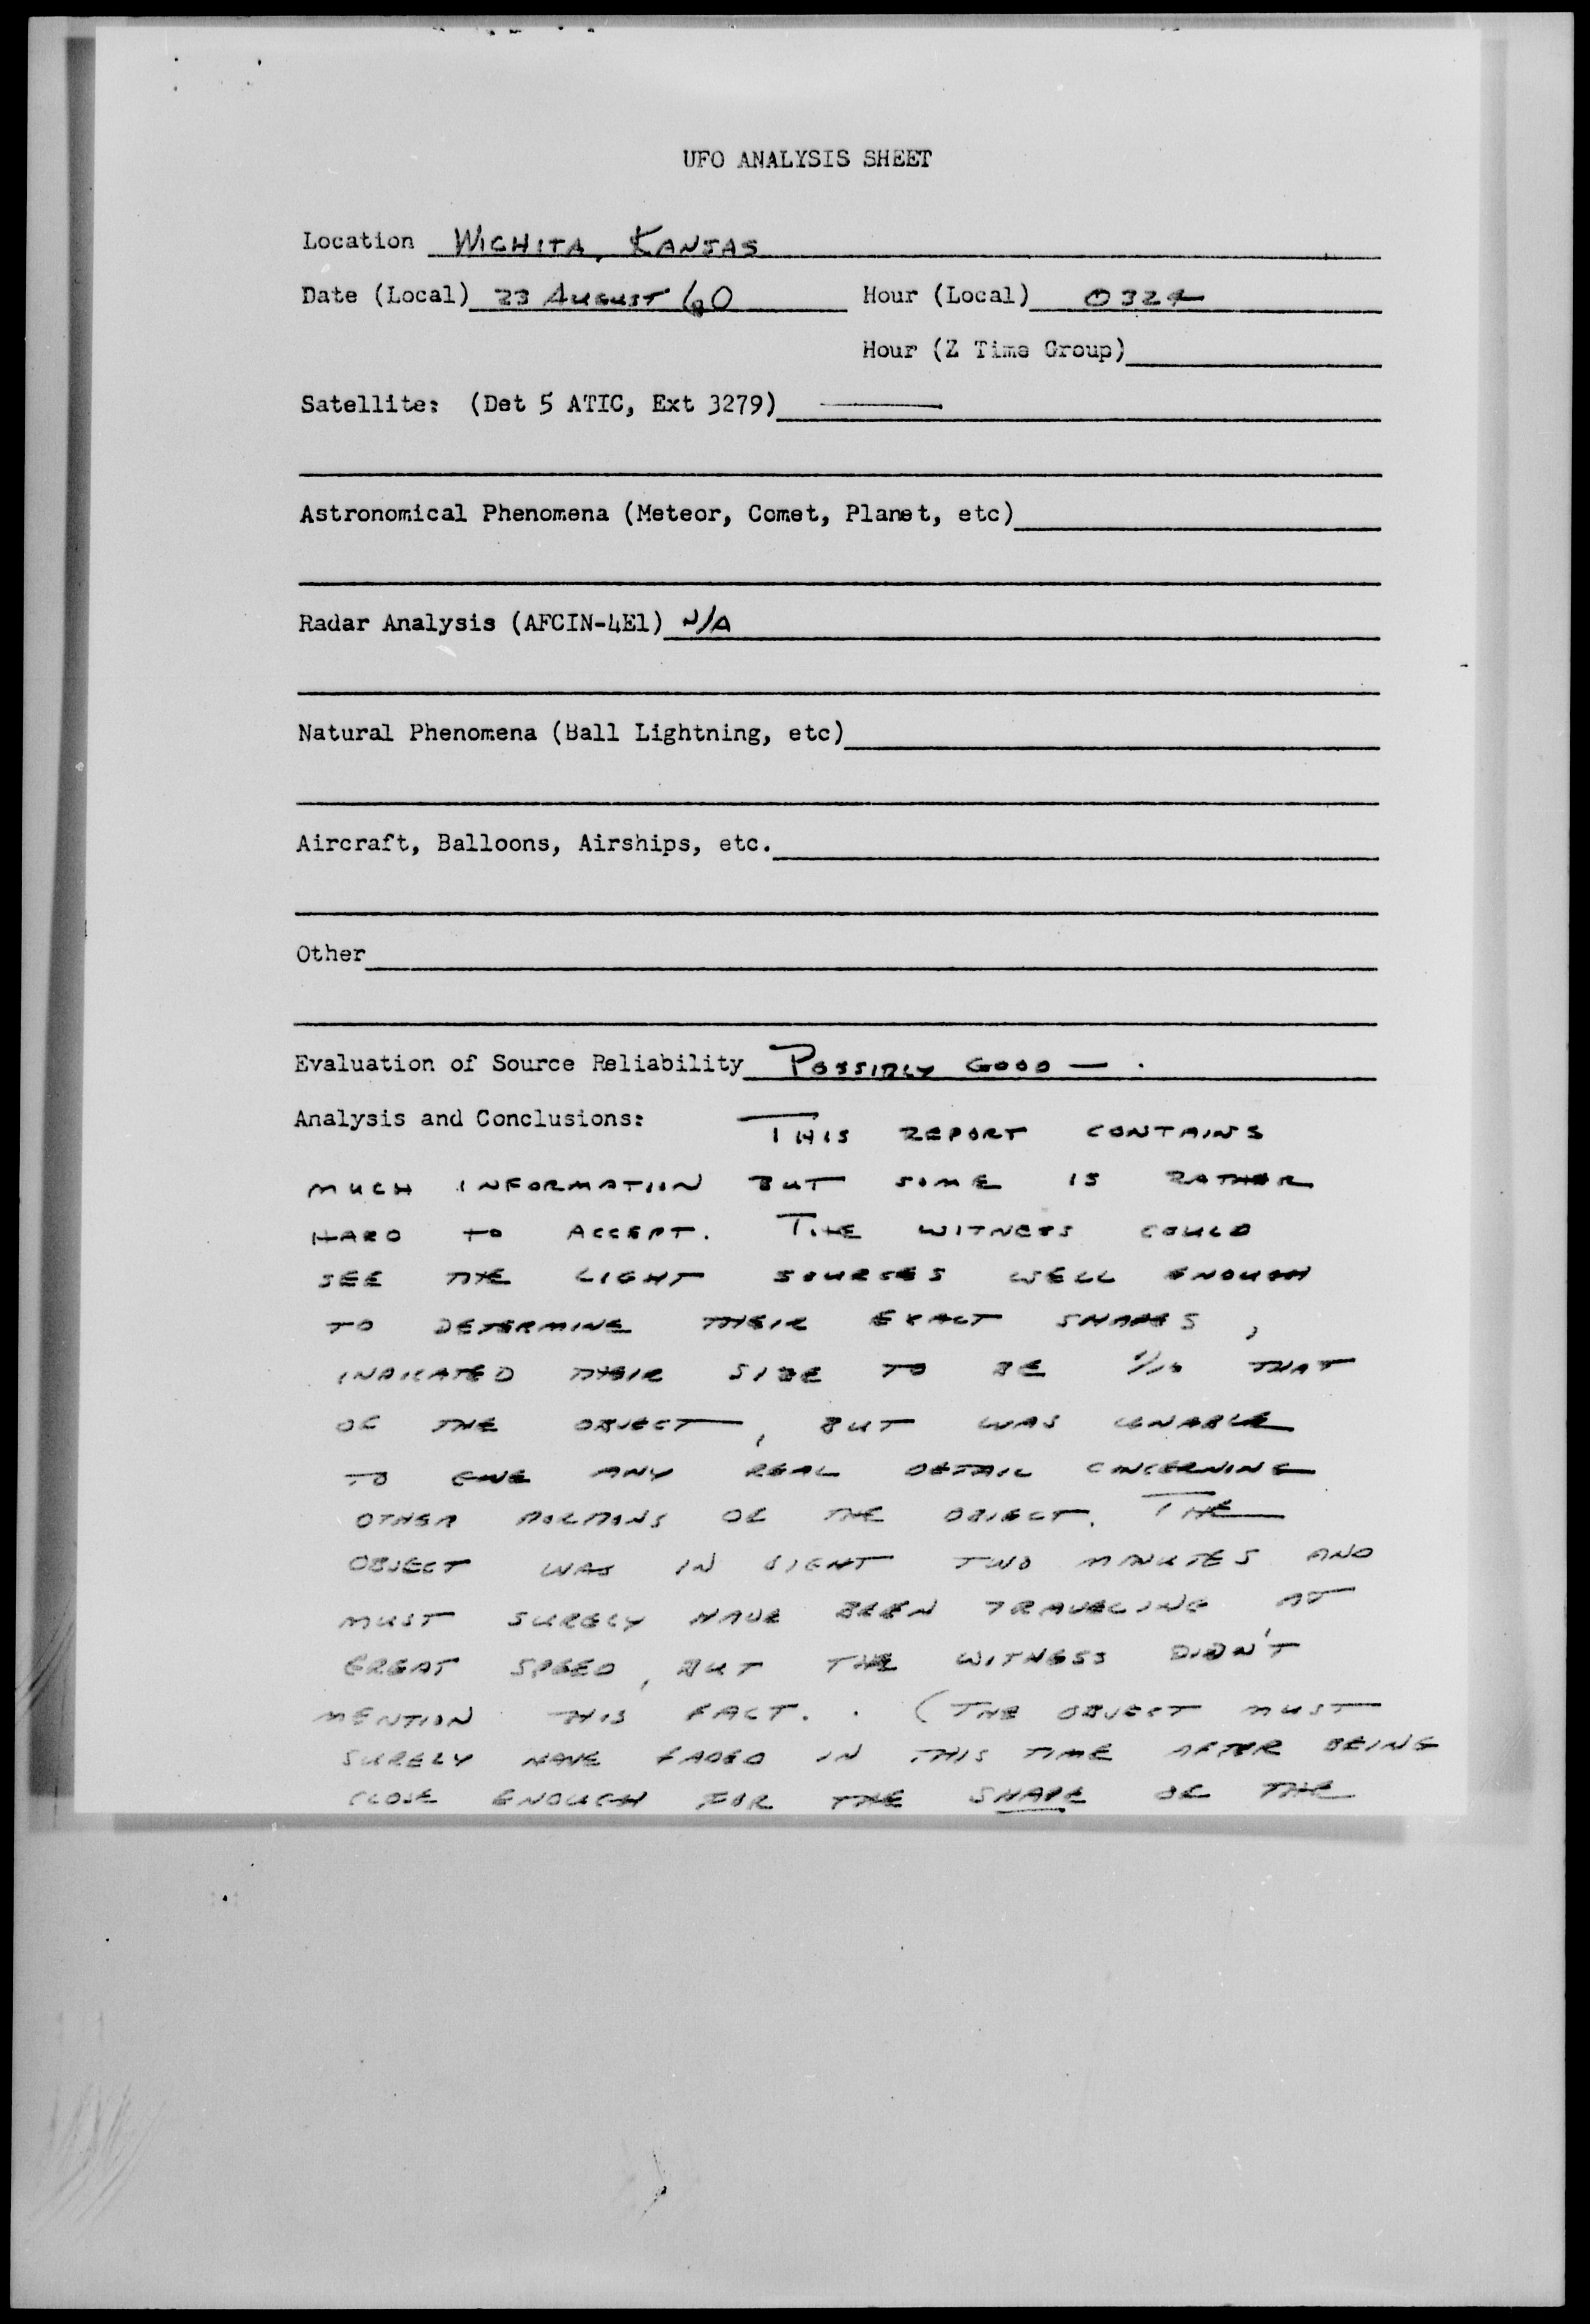 UFO ANALYSIS SHEET
Location WICHITA, KANSAS
Date (Local) 23 AUGUST 60 Hour (Local) 0324
Hour (Z Time Group)
Satellite: (Det 5 ATIC, Ext 3279) ———
Astronomical Phenomena (Meteor, Comet, Planet, etc)
Radar Analysis (AFCIN-4E1) N/A
Natural Phenomena (Ball Lightning, etc)
Aircraft, Balloons, Airships, etc.
Other
Evaluation of Source Reliability POSSIBLY GOOD — .
Analysis and Conclusions: THIS REPORT CONTAINS
MUCH INFORMATION BUT SOME IS RATHER
HARD TO ACCEPT. THE WITNESS COULD
SEE THE LIGHT SOURCES WELL ENOUGH
TO DETERMINE THEIR EXACT SHAPES,
INDICATED THEIR SIZE TO BE 1/10 THAT
OF THE OBJECT, BUT WAS UNABLE
TO GIVE ANY REAL DETAIL CONCERNING
OTHER PORTIONS OF THE OBJECT. THE
OBJECT WAS IN SIGHT TWO MINUTES AND
MUST SURELY HAVE BEEN TRAVELING AT
GREAT SPEED, BUT THE WITNESS DIDN'T
MENTION THIS FACT. . (THE OBJECT MUST
SURELY HAVE FADED IN THIS TIME AFTER BEING
CLOSE ENOUGH FOR THE SHAPE OF THE